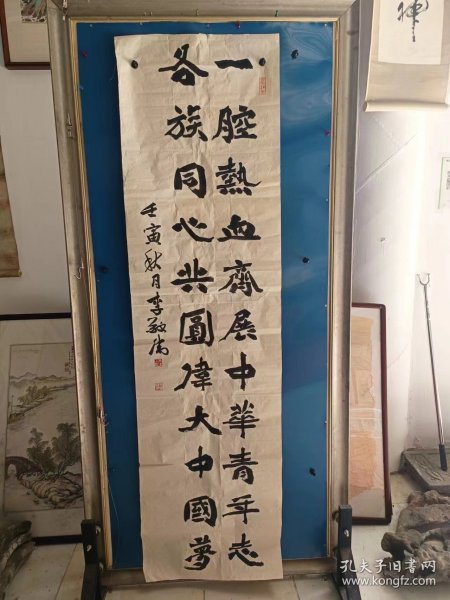 一腔熱血齊展中華青年志
各族同心共圓偉大中國夢
壬寅秋月李敬儒
神
孔夫子旧书网
www.kongfz.com